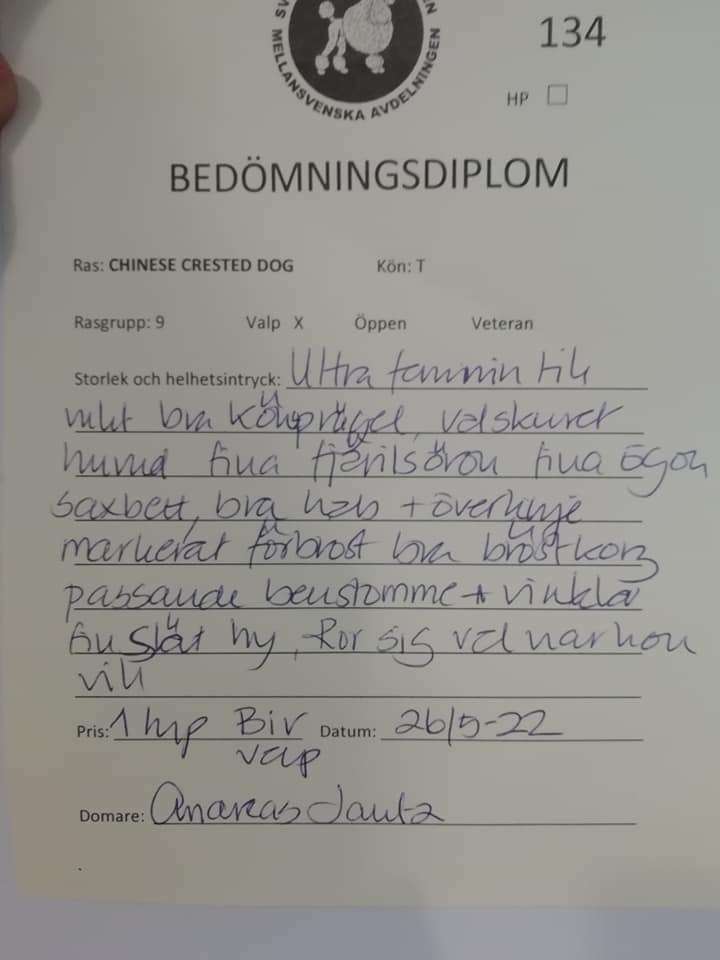 SV EN
MELLANSVENSKA AVDELNINGEN
134
HP
BEDÖMNINGSDIPLOM
Ras: CHINESE CRESTED DOG Kön: T
Rasgrupp: 9 Valp X Öppen Veteran
Storlek och helhetsintryck: Ultra feminin tik
mkt bra könsprägel, välskuret
huvud fina fjärilsöron fina ögon
saxbett, bra hals + överlinje
markerat förbröst bra bröstkorg
passande benstomme + vinklar
fin slät hy, Rör sig väl när hon
vill
Pris: 1 hp Bir Datum: 26/5-22
valp
Domare: Jautz